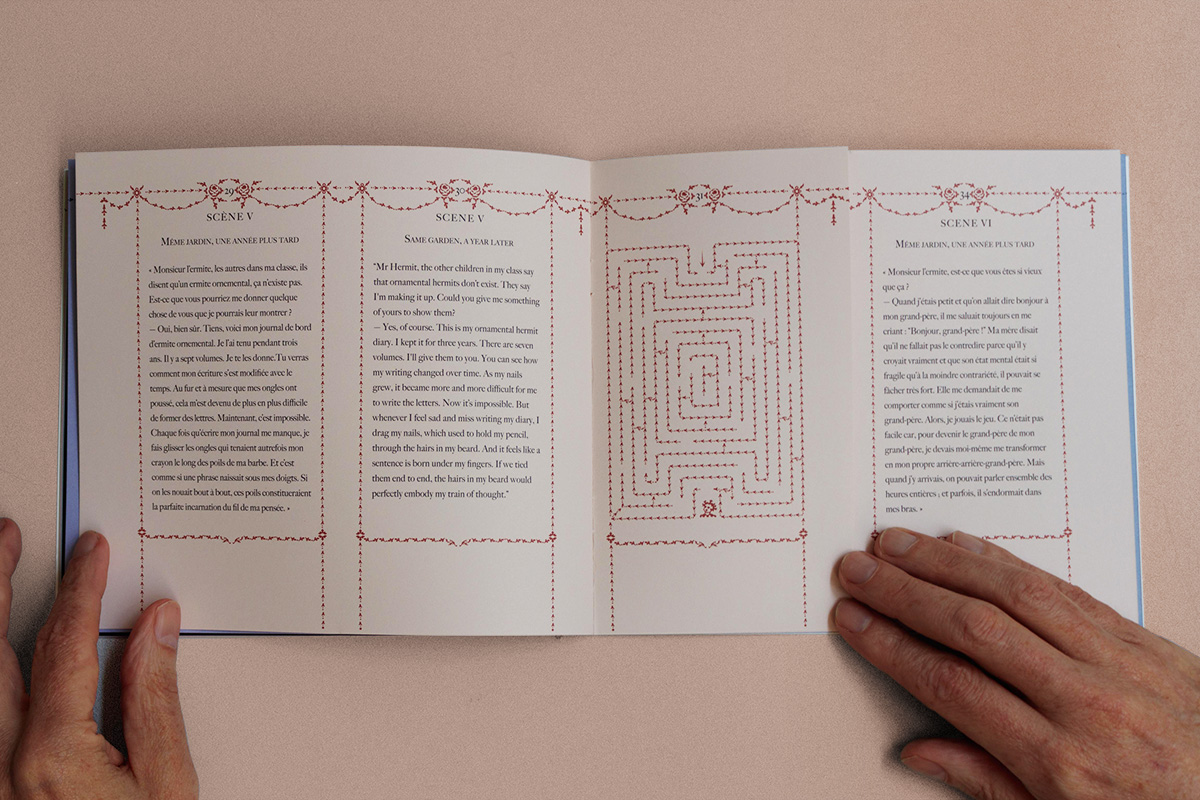 29
SCÈNE V
MÊME JARDIN, UNE ANNÉE PLUS TARD
« Monsieur l'ermite, les autres dans ma classe, ils
disent qu'un ermite ornemental, ça n'existe pas.
Est-ce que vous pourriez me donner quelque
chose de vous que je pourrais leur montrer ?
— Oui, bien sûr. Tiens, voici mon journal de bord
d'ermite ornemental. Je l'ai tenu pendant trois
ans. Il y a sept volumes. Je te les donne. Tu verras
comment mon écriture s'est modifiée avec le
temps. Au fur et à mesure que mes ongles ont
poussé, cela m'est devenu de plus en plus difficile
de former des lettres. Maintenant, c'est impossible.
Chaque fois qu'écrire mon journal me manque, je
fais glisser les ongles qui tenaient autrefois mon
crayon le long des poils de ma barbe. Et c'est
comme si une phrase naissait sous mes doigts. Si
on les nouait bout à bout, ces poils constitueraient
la parfaite incarnation du fil de ma pensée. »
30
SCENE V
SAME GARDEN, A YEAR LATER
"Mr Hermit, the other children in my class say
that ornamental hermits don't exist. They say
I'm making it up. Could you give me something
of yours to show them?
— Yes, of course. This is my ornamental hermit
diary. I kept it for three years. There are seven
volumes. I'll give them to you. You can see how
my writing changed over time. As my nails
grew, it became more and more difficult for me
to write the letters. Now it's impossible. But
whenever I feel sad and miss writing my diary, I
drag my nails, which used to hold my pencil,
through the hairs in my beard. And it feels like a
sentence is born under my fingers. If we tied
them end to end, the hairs in my beard would
perfectly embody my train of thought."
31
34
SCÈNE VI
MÊME JARDIN, UNE ANNÉE PLUS TARD
« Monsieur l'ermite, est-ce que vous êtes si vieux
que ça ?
— Quand j'étais petit et qu'on allait dire bonjour à
mon grand-père, il me saluait toujours en me
criant : "Bonjour, grand-père !" Ma mère disait
qu'il ne fallait pas le contredire parce qu'il y
croyait vraiment et que son état mental était si
fragile qu'à la moindre contrariété, il pouvait se
fâcher très fort. Elle me demandait de me
comporter comme si j'étais vraiment son
grand-père. Alors, je jouais le jeu. Ce n'était pas
facile car, pour devenir le grand-père de mon
grand-père, je devais moi-même me transformer
en mon propre arrière-arrière-grand-père. Mais
quand j'y arrivais, on pouvait parler ensemble des
heures entières ; et parfois, il s'endormait dans
mes bras. »